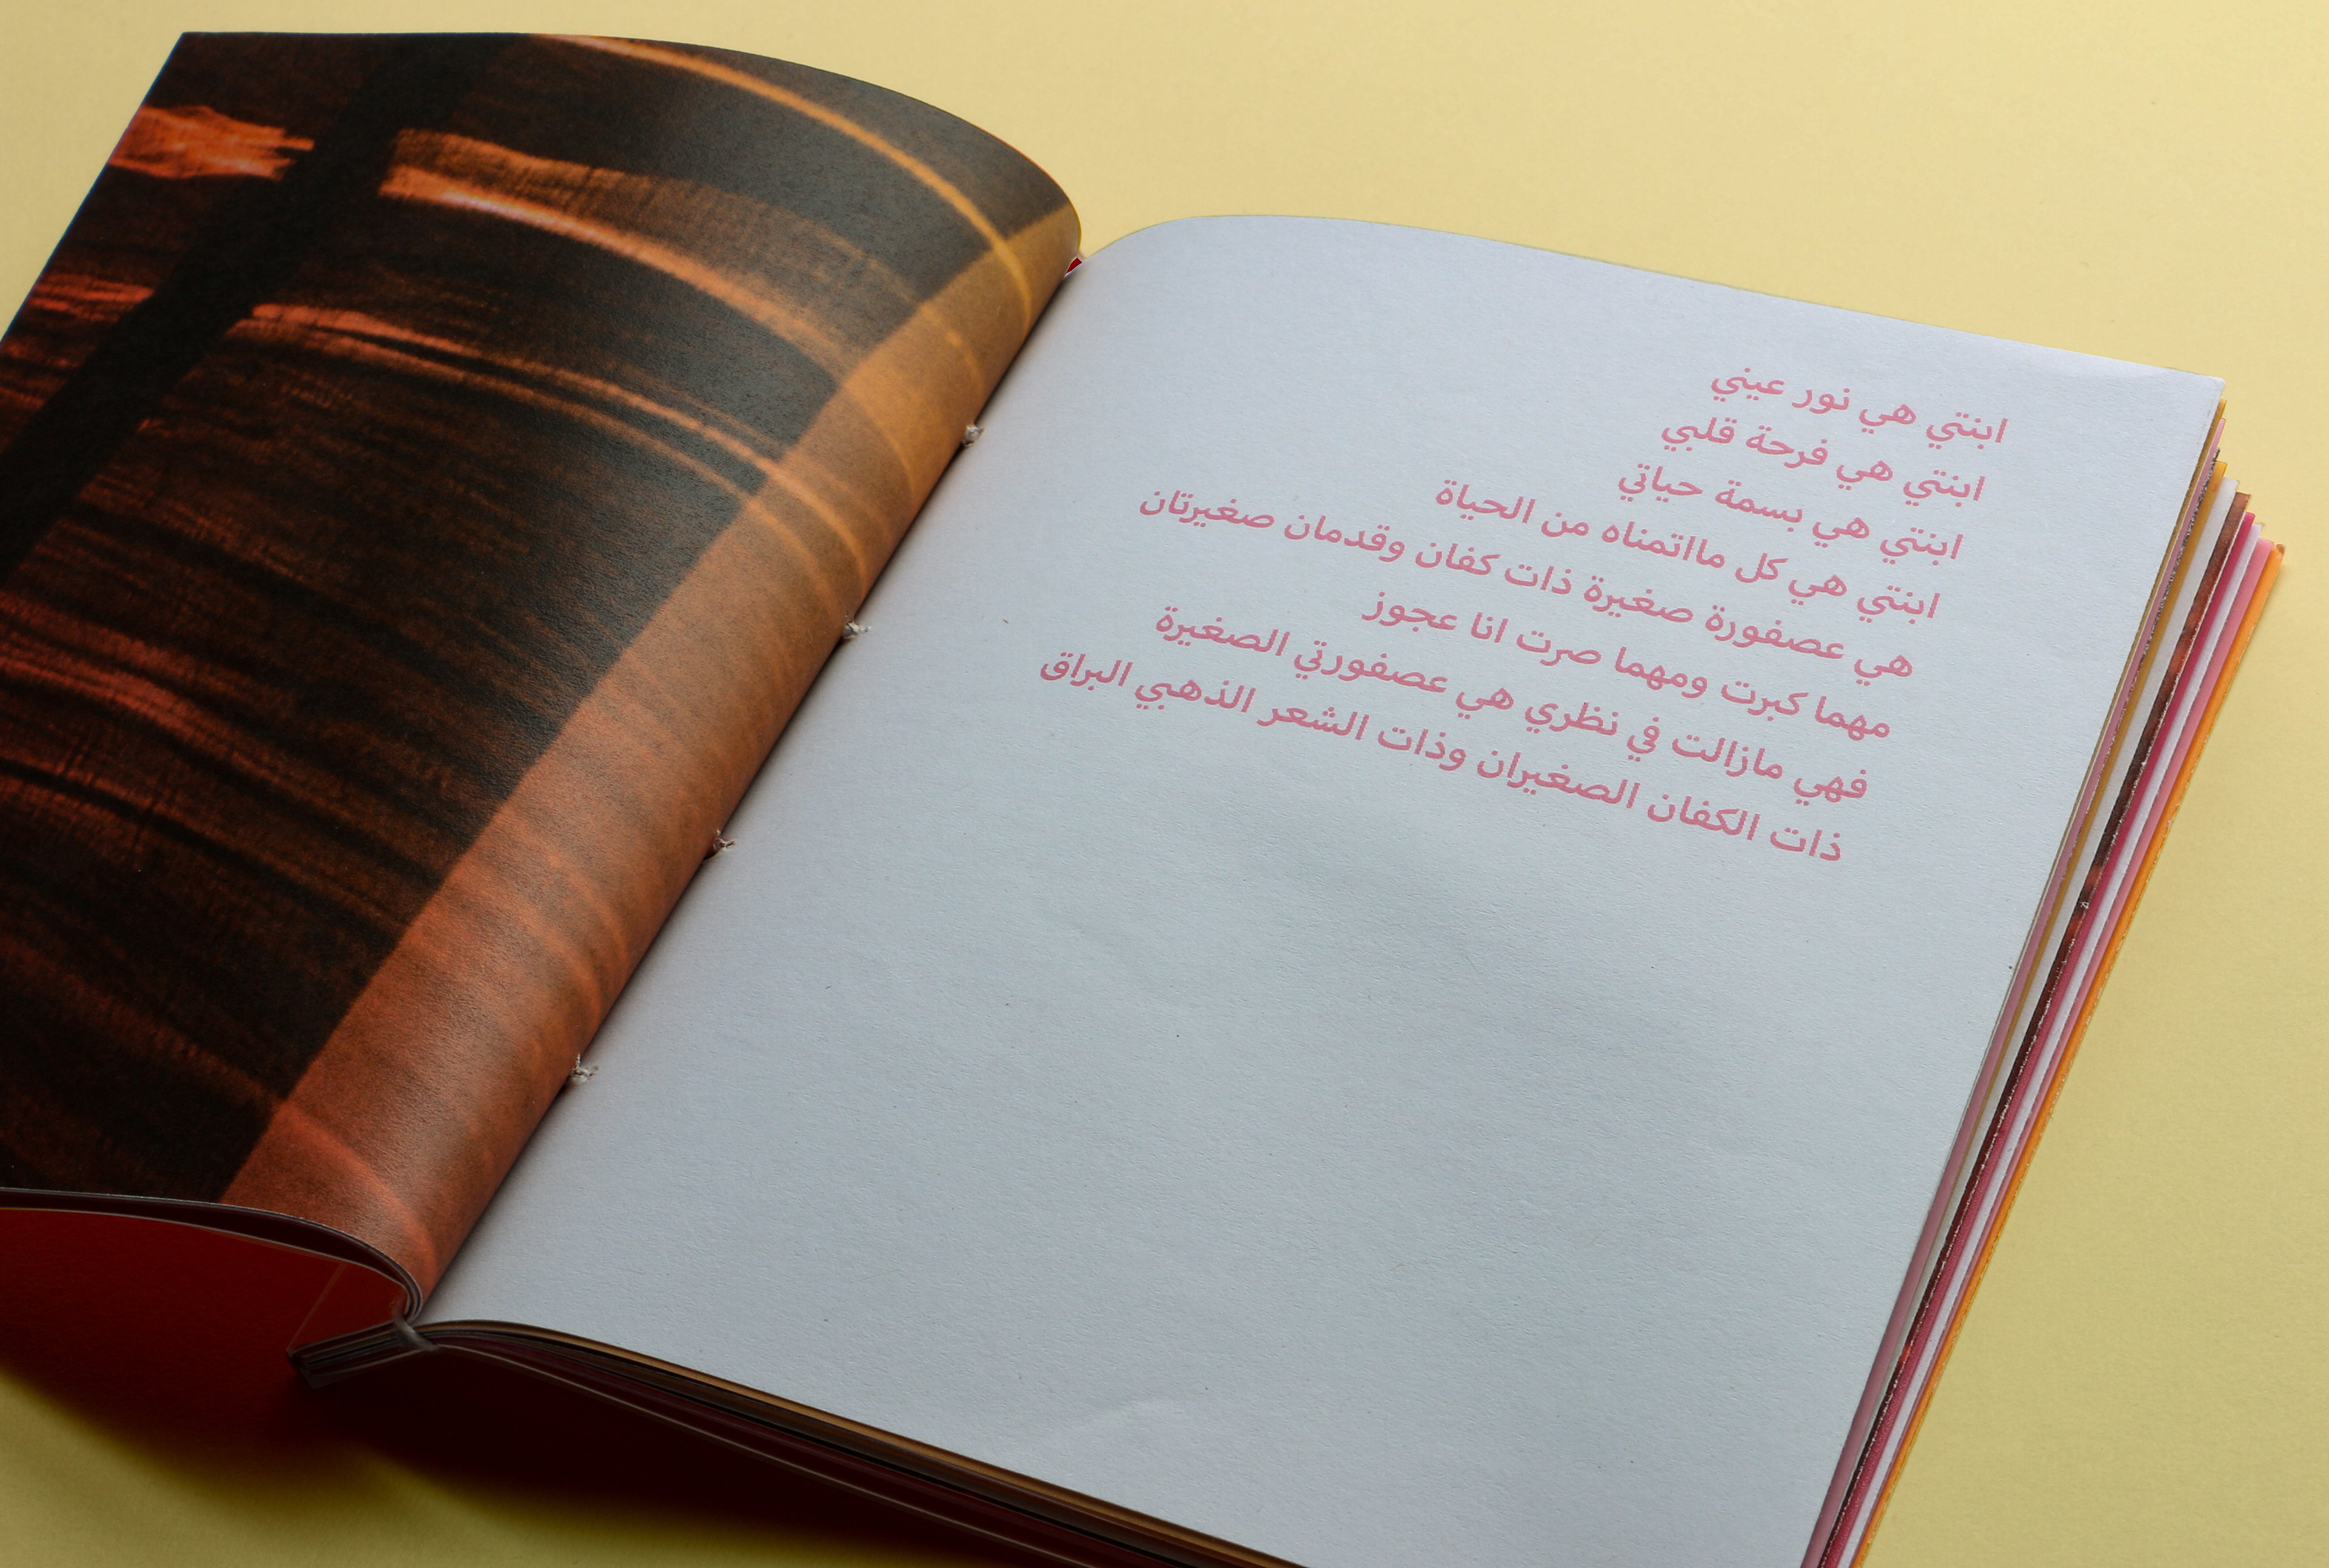 ابنتي هي نور عيني
ابنتي هي فرحة قلبي
ابنتي هي بسمة حياتي
ابنتي هي كل مااتمناه من الحياة
هي عصفورة صغيرة ذات كفان وقدمان صغيرتان
مهما كبرت ومهما صرت انا عجوز
فهي مازالت في نظري هي عصفورتي الصغيرة
ذات الكفان الصغيران وذات الشعر الذهبي البراق